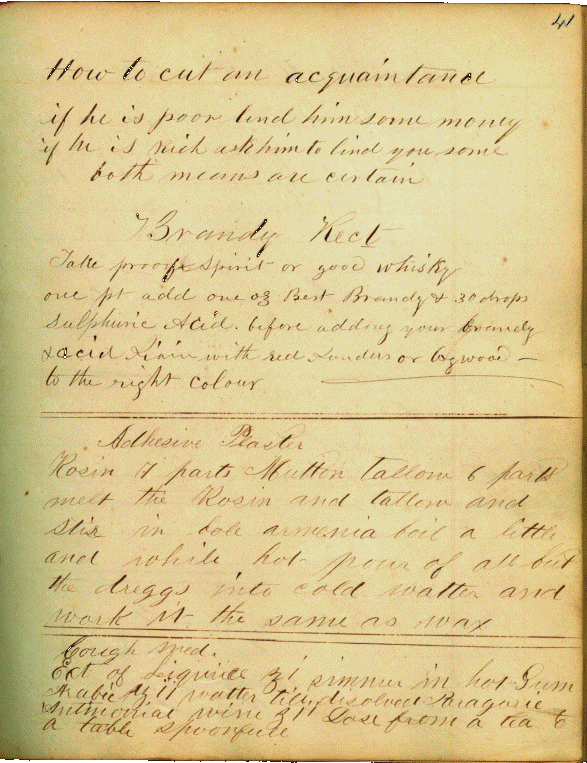 41
How to cut an acquaintance
if he is poor lend him some money
if he is rich ask him to lind you some
both means are certain
Brandy Rect
Take proof Spirit or good whisky
one pt add one oz Best Brandy & 30 drops
Sulphuric Acid. before adding your brandy
& acid with red Sanders or logwood —
to the right colour
Adhesive Plaster
Rosin 7 parts Mutton Tallow 6 parts
melt the Rosin and tallow and
stir in bole armenia boil a little
and while hot pour of all but
the dreggs into cold watter and
work it the same as wax
Cough Med.
Ext of Liqurice ʒi simmer in hot Gum
Arabic watter till disolved Paragoric
Antimonial wine Dose from a tea to
a table spoonfull